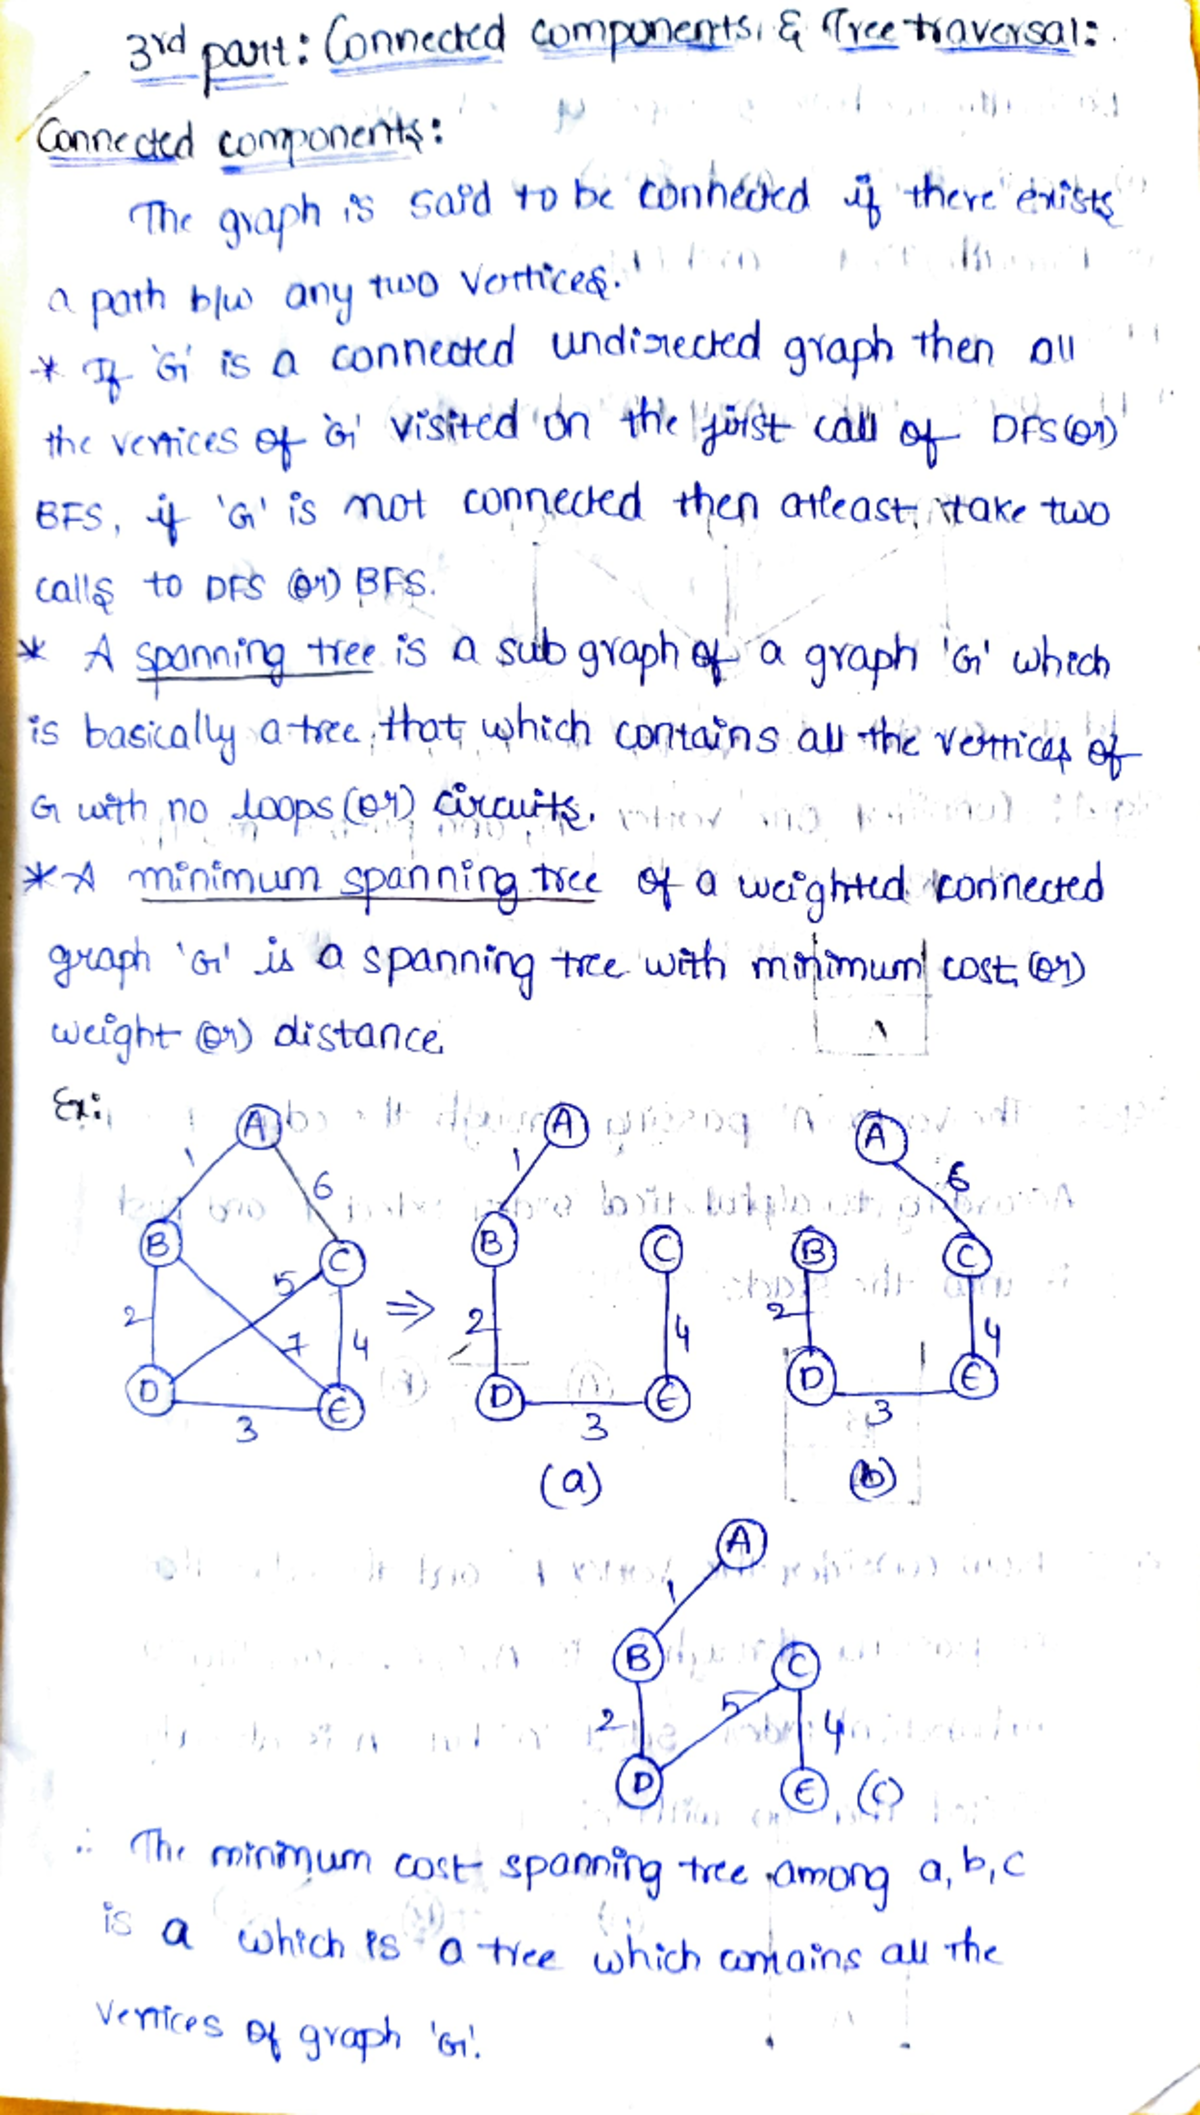 3rd part: Connected components, & Tree traversal:
Connected components:
The graph is said to be connected if there exists
a path b/w any two vertices.
* If 'G' is a connected undirected graph then all
the vertices of 'G' visited on the first call of DFS (or)
BFS, if 'G' is not connected then atleast, take two
calls to DFS (or) BFS.
* A spanning tree is a sub graph of a graph 'G' which
is basically a tree, that which contains all the vertices of
G with no loops (or) circuits.
* A minimum spanning tree of a weighted connected
graph 'G' is a spanning tree with minimum cost (or)
weight (or) distance.
Ex:
A A A
1 6 1 6
B C B C B C
5
2 7 4 ⇒ 2 4 2 4
D E D E D E
3 3 3
(a) (b)
A
1
B C
2 5 4
D E (c)
∴ The minimum cost spanning tree among a, b, c
is a which is a tree which contains all the
vertices of graph 'G'.